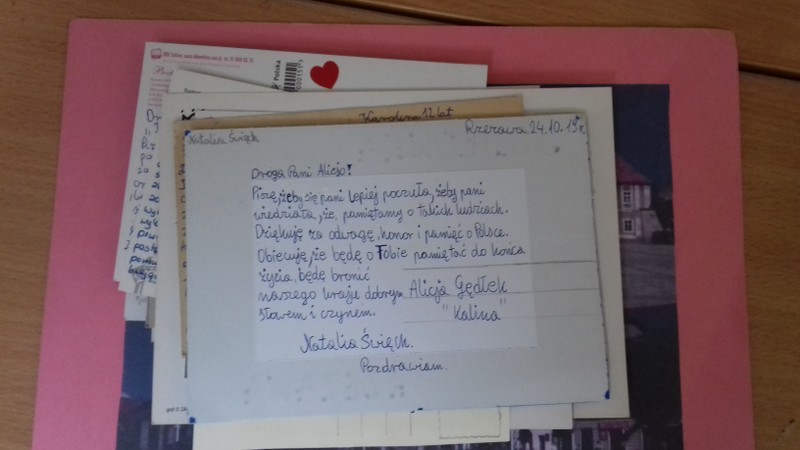 Polska
Karolina 12 lat
Natalia Święch
Rzezawa 24.10.19r.
Droga Pani Alicjo!
Piszę, żeby się pani lepiej poczuła, żeby pani
wiedziała, że, pamiętamy o takich ludziach.
Dziękuję za odwagę, honor i pamięć o Polsce.
Obiecuję, że będę o Tobie pamiętać do końca
życia, będę bronić
naszego kraju dobrym
słowem i czynem.
Alicja Gędłek
"Kalina"
Natalia Święch.
Pozdrawiam.